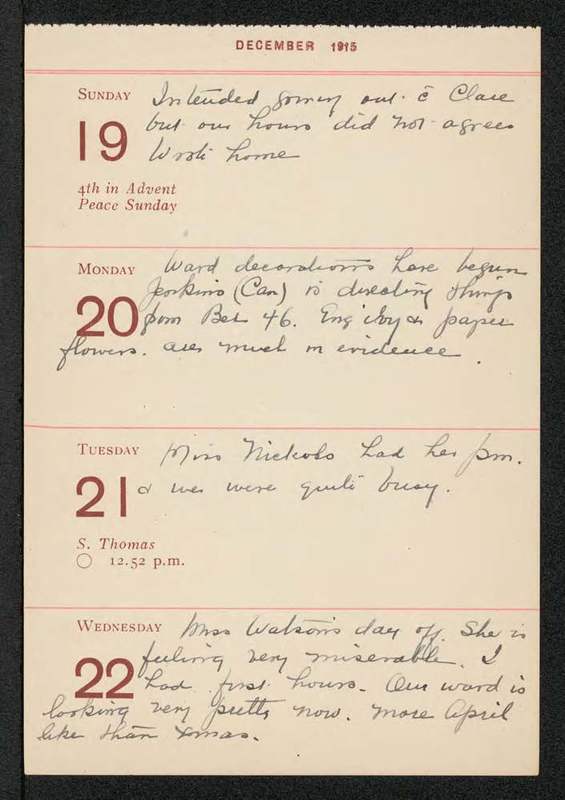 DECEMBER 1915
SUNDAY
19
4th in Advent
Peace Sunday
Intended going out c̄ Clare
but our hours did not agree
Wrote home
MONDAY
20
Ward decorations have begun
Jenkins (Can) is directing things
from Bed 46. Eng ivy & paper
flowers. are much in evidence.
TUESDAY
21
S. Thomas
12.52 p.m.
Miss Nickols had her pm.
& we were quite busy.
WEDNESDAY
22
Miss Watson's day off. She is
feeling very miserable. I
had first hours. Our ward is
looking very pretty now. more April
like than Xmas.